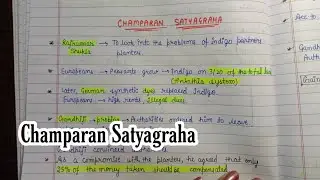 CHAMPARAN SATYAGRAHA
Rajkumar Shukla → To look into the problems of Indigo farmers
planters.
Europeans → Peasants grow → Indigo on 3/20 of the total land
(Tinkathia system)
later, German synthetic dyes replaced Indigo
Europeans → high rents, illegal dues
Gandhiji → Authorities ordered him to leave
Champaran Satyagraha
convinced
As a compromise with the planters, he agreed that only
25% of the money taken should be compensated
Acc to
Gandh
Autho